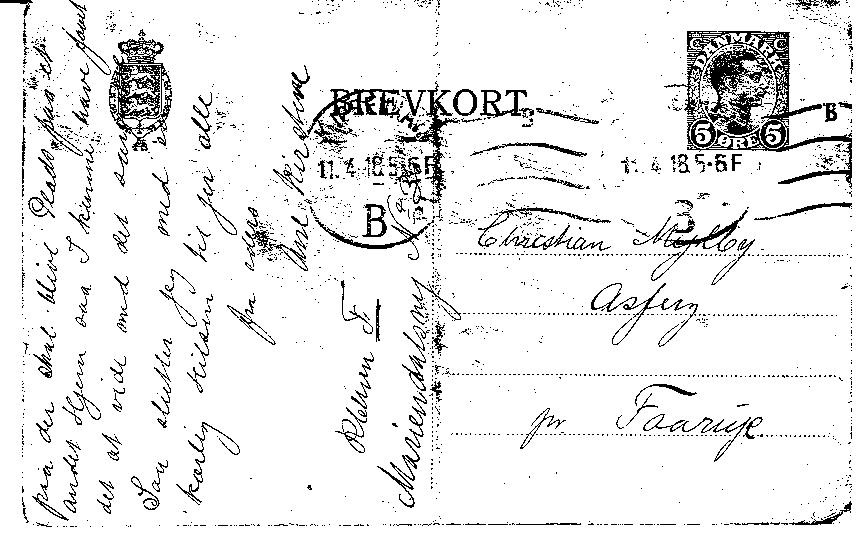 BREVKORT
DANMARK
5 ØRE 5
KJØBENHAVN
11.4.18.5-6F
B
11.4.18.5-6F
B
3
Christian Mylby
Asferg
pr Faarup
paa der skal blive Plads paa et
andet Hjem saa I kunne have faaet
det at vide med det samme
Saa slutter jeg med
kærlig Hilsen til jer alle
fra eders
Ane Kirstine
Mariendalsvej